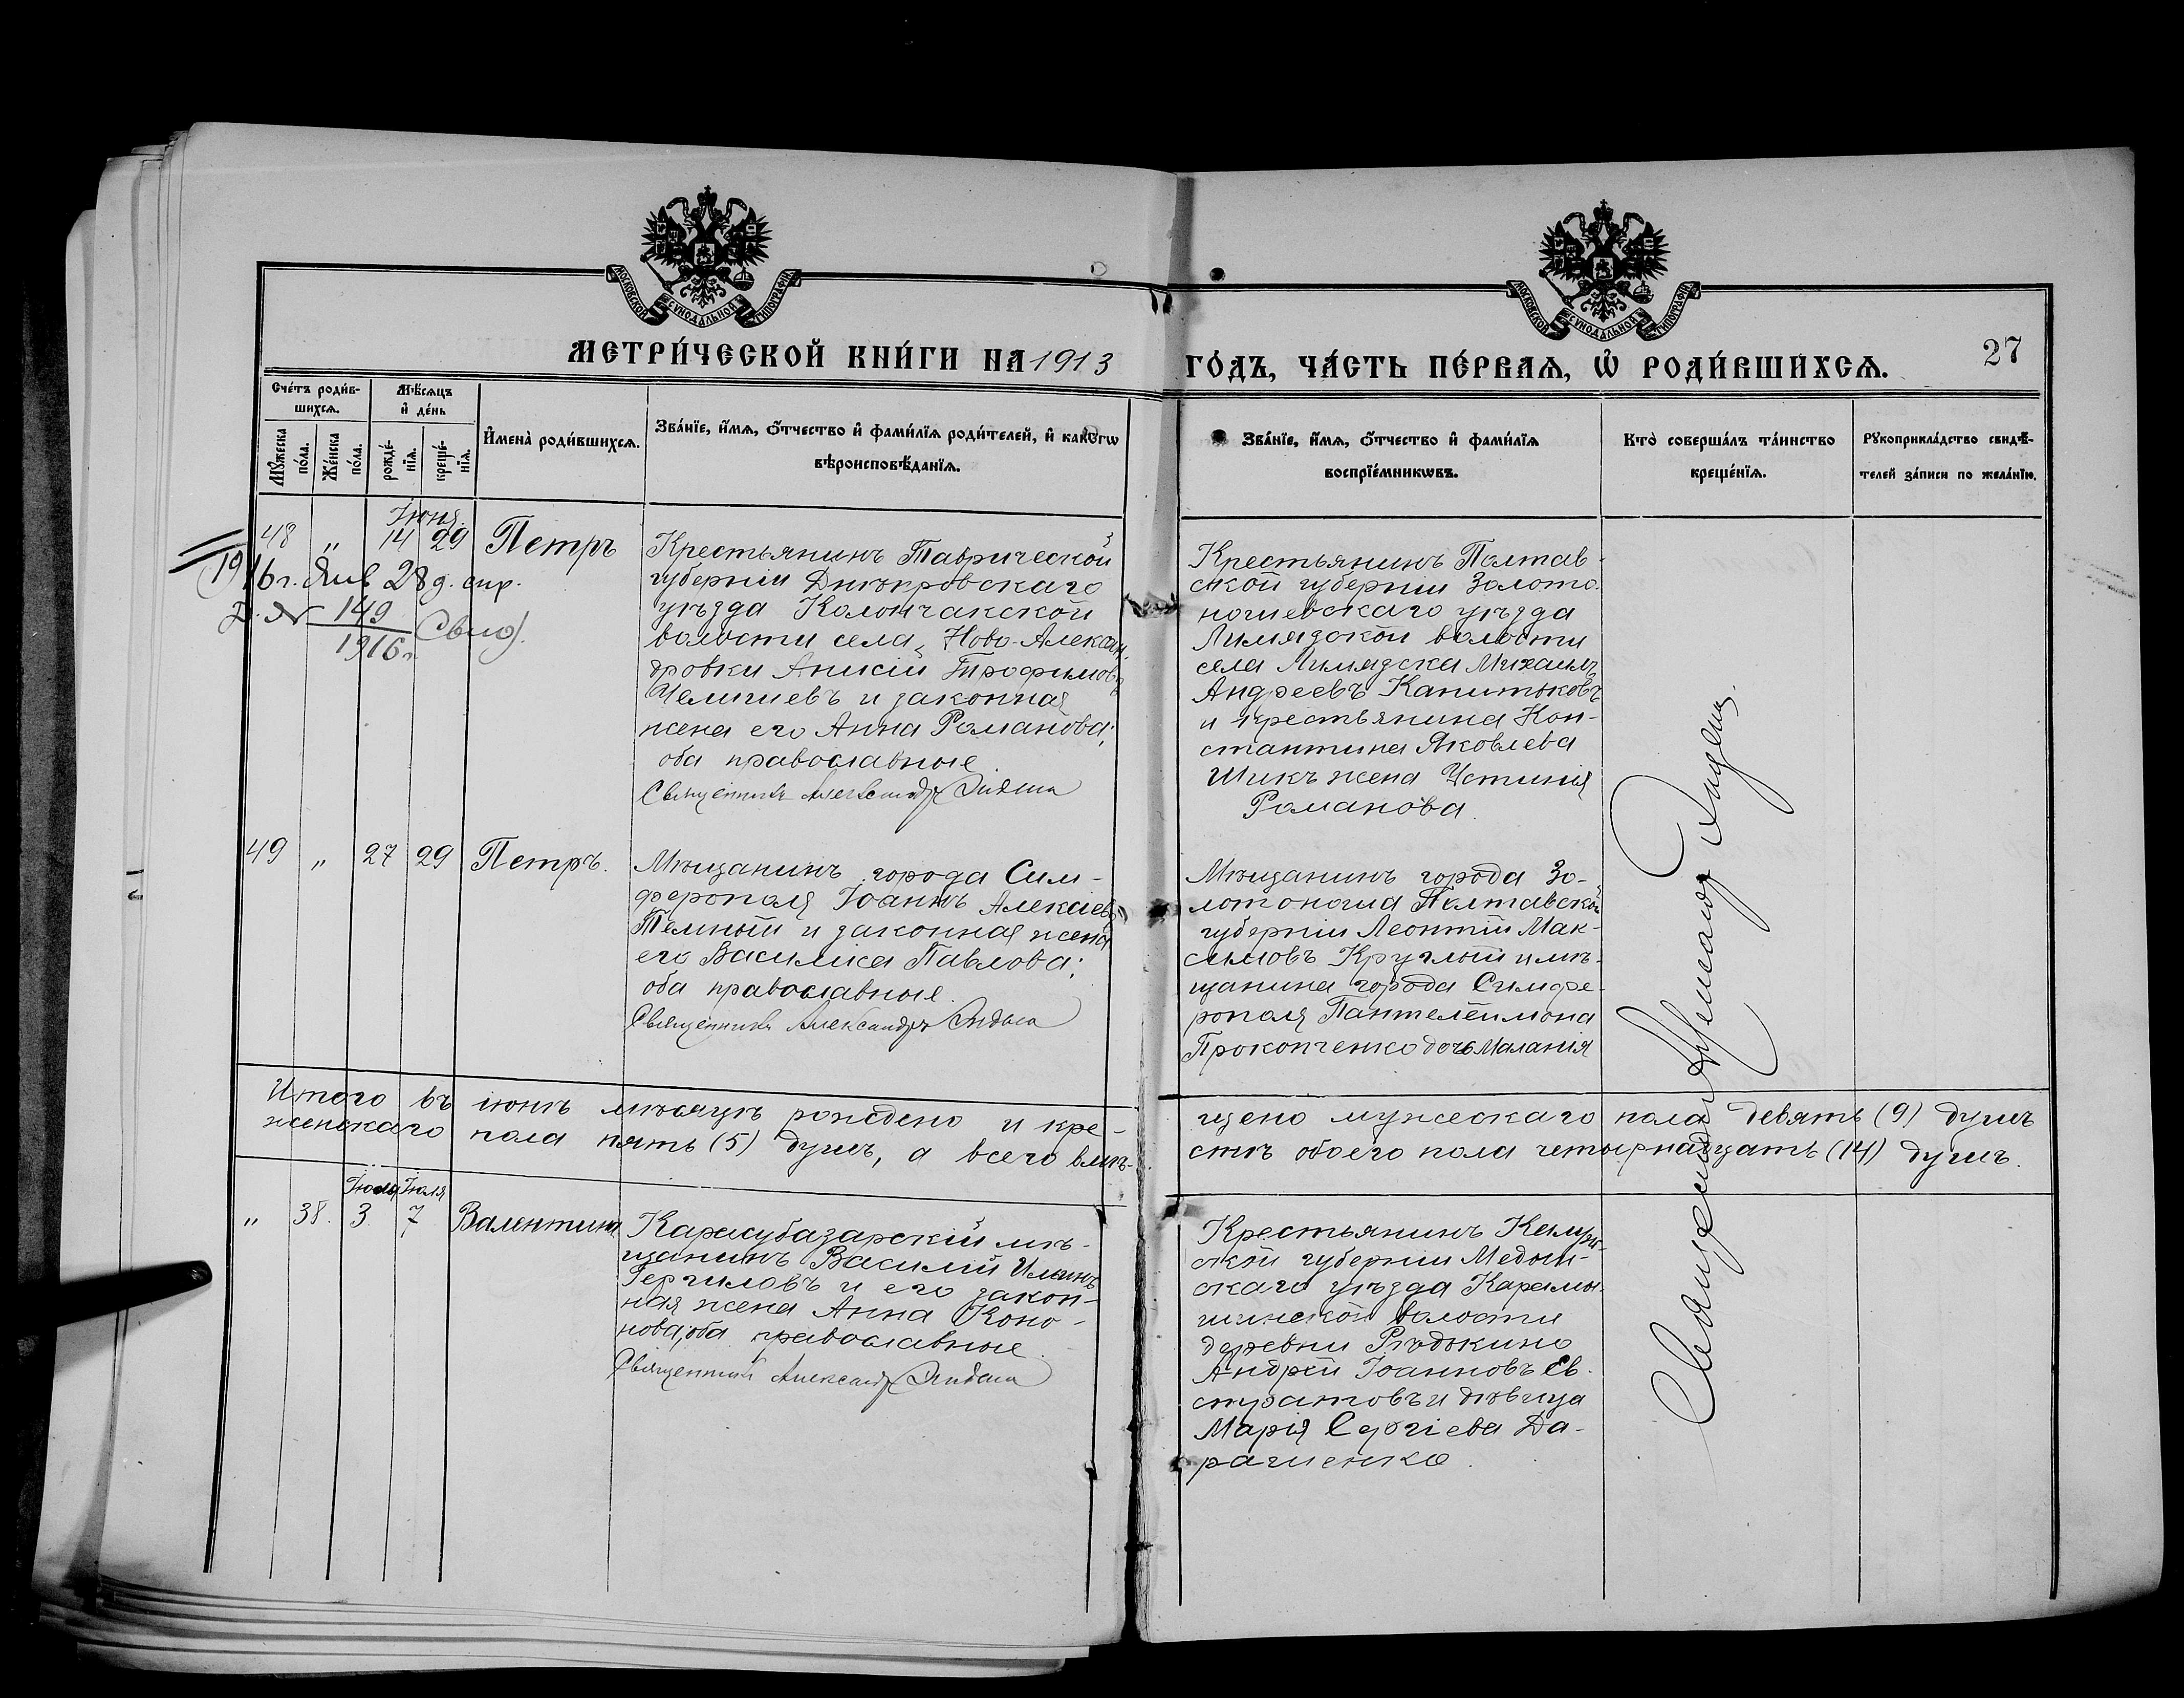 МОСКОВСКОЙ СУНОДАЛЬНОЙ ТИПОГРАФІИ
МОСКОВСКОЙ СУНОДАЛЬНОЙ ТИПОГРАФІИ
МЕТРИ́ЧЕСКОЙ КНИ́ГИ НА 1913
ГО́ДЪ, ЧА́СТЬ ПЕ́РВАѦ, Ѽ РОДИ́ВШИХСѦ.
27
Сче́тъ роди́в-
шихсѧ.
Мѣ́сѧцъ
и҆ де́нь
Мꙋ́жеска по́ла.
Же́нска по́ла.
рожде́-
нїѧ.
креще́-
нїѧ.
И҆мена̀ роди́вшихсѧ.
Зва́нїе, и҆́мѧ, ѻ҆́тчество и҆ фами́лїѧ роди́телей, и҆ како́гѡ
вѣроисповѣ́данїѧ.
Зва́нїе, и҆́мѧ, ѻ҆́тчество и҆ фами́лїѧ
воспрїе́мникѡвъ.
Кто̀ соверша́лъ та́инство
креще́нїѧ.
Рꙋкоприкла́дство свидѣ́-
телей за́писи по жела́нїю.
Іюня.
48 „ 14 29 Петръ
1916 г. Янв 28 д. спр.
149
1916 г.
Крестьянинъ Таврической
губерніи Днѣпровскаго
уѣзда Колончакской
волости села Ново-Алексан
дровки Анисій Трофимовъ
и законная
жена его Анна Романова;
оба православные.
Священникъ Александръ
Крестьянинъ Полтав-
ской губерніи Золото-
ношевскаго уѣзда
волости
села Михаилъ
Андреевъ
и крестьянина Кон-
стантина Яковлева
Шикъ жена Устинія
Романова.
49 „ 27 29 Петръ.
Мѣщанинъ города Сим-
ферополя Іоаннъ Алексіевъ
Темный и законная жена
его Василиса Павлова;
оба православные.
Священникъ Александръ
Мѣщанинъ города Зо-
лотоноша Полтавской
губерніи Леонтій Мак-
симовъ Круглый и мѣ-
щанина города Симфе-
рополя Пантелеимона
Прокопченко дочь Маланія
Итого въ іюнѣ мѣсяцѣ рождено и кре-
щено мужескаго пола девять (9) душъ
женскаго пола пять (5) душъ, а всего вмѣ-
стѣ обоего пола четырнадцать (14) душъ.
Іюля Іюля
„ 38. 3. 7 Валентина
Карасубазарскій мѣ-
щанинъ Василій Ильинъ
и его закон-
ная жена Анна Коно-
нова; оба православные.
Священникъ Александръ
Крестьянинъ Калуж-
ской губерніи Медын-
скаго уѣзда
волости
деревни Рѣдькино
Андрей Іоанновъ Ев-
стратовъ и дѣвица
Марія Сергіева Да-
рагиенко.
Священникъ Александръ